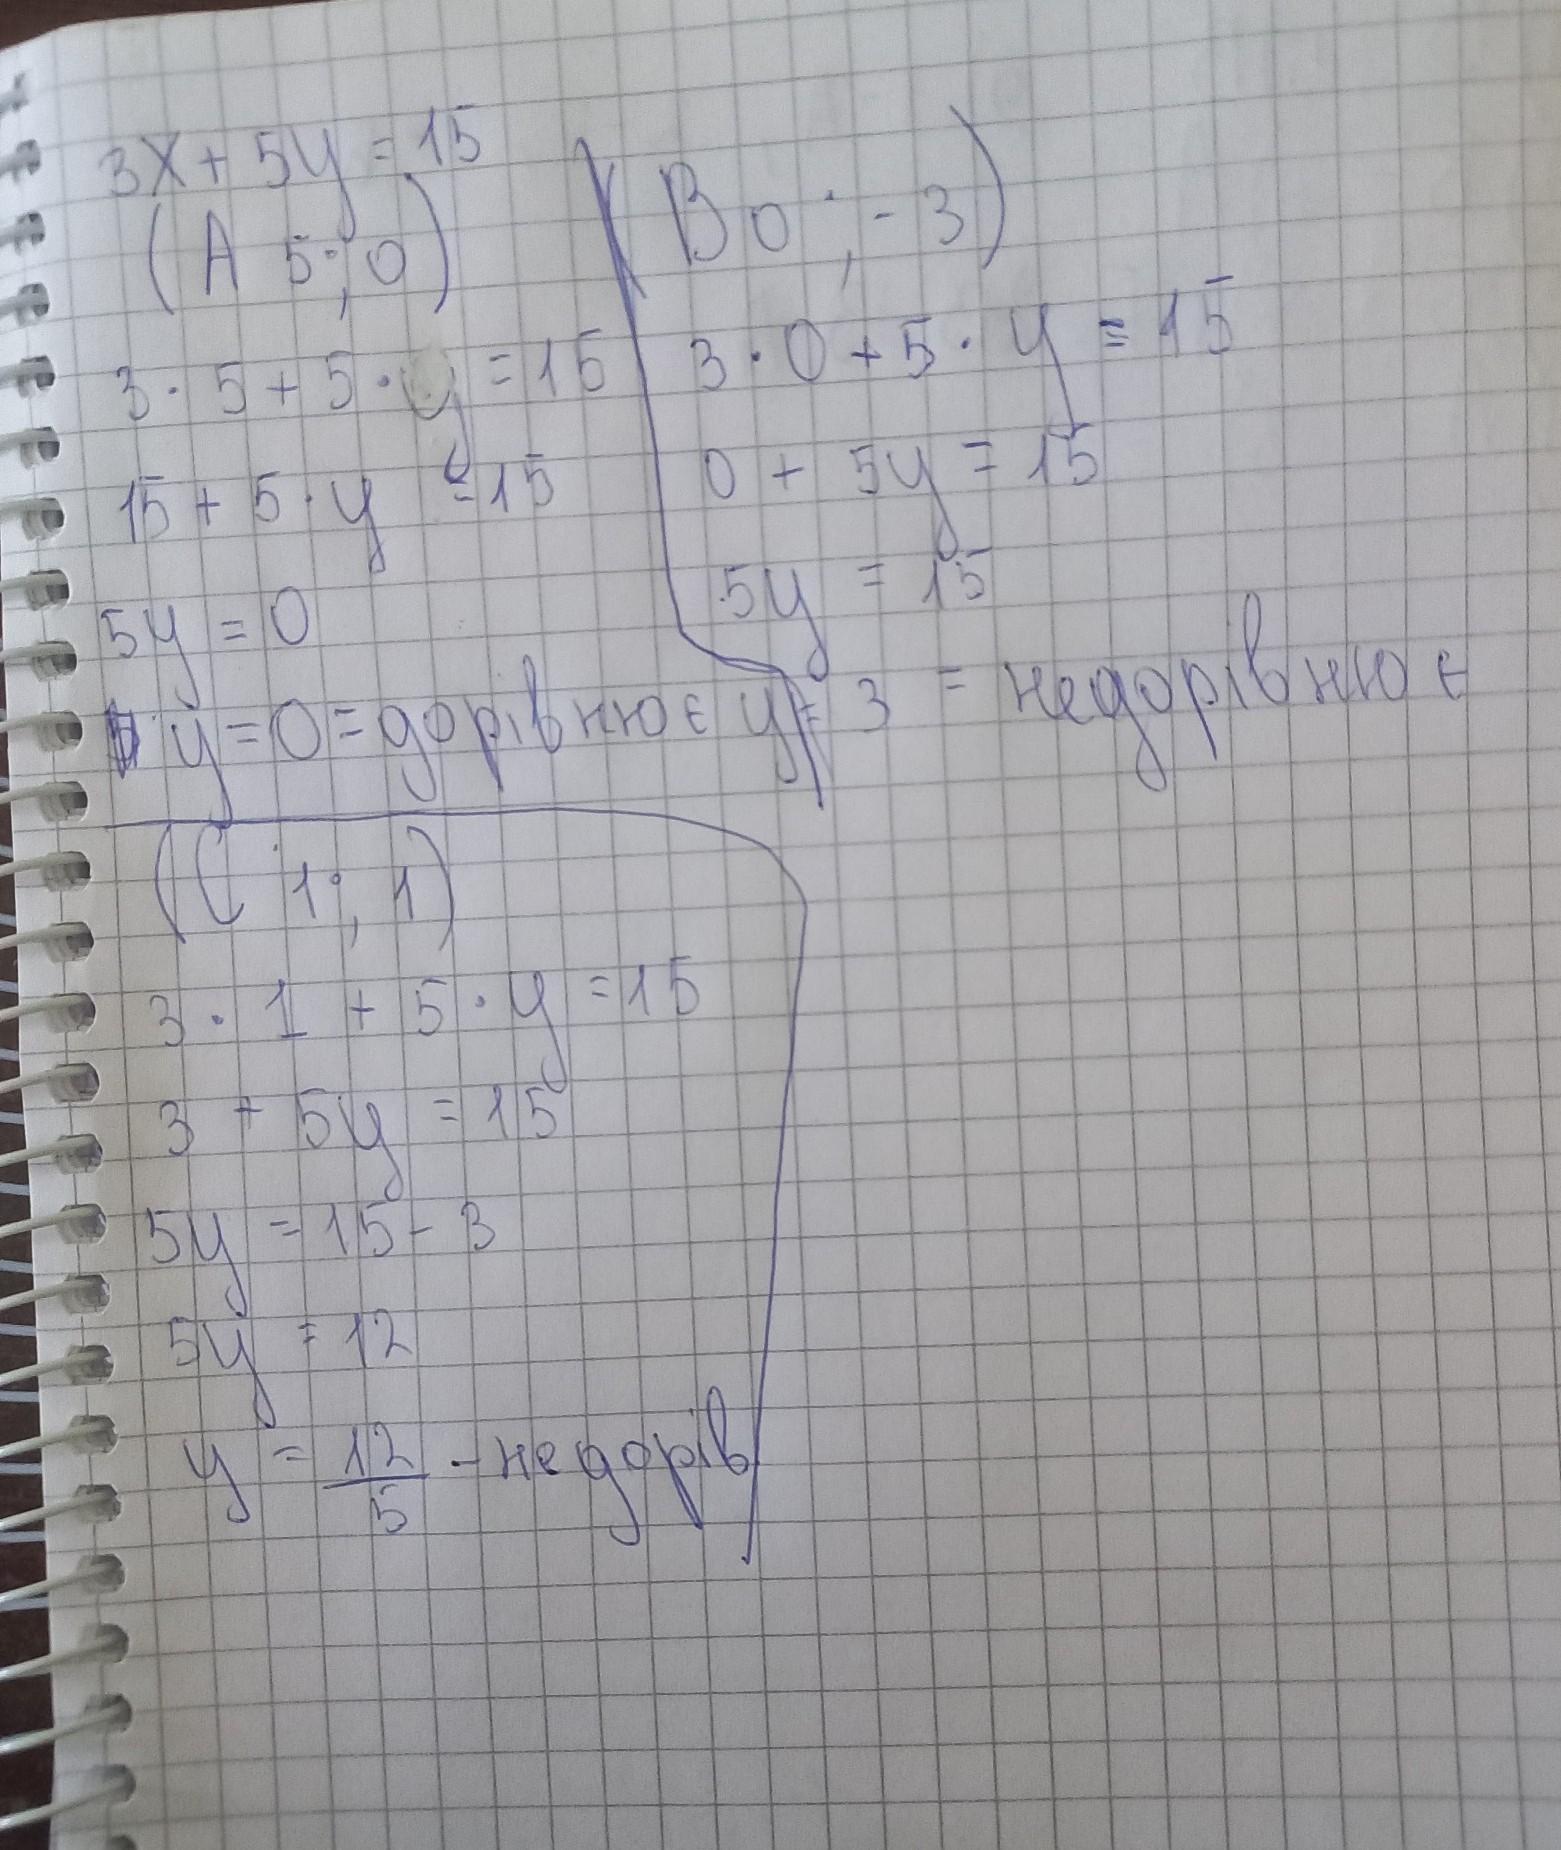 3x + 5y = 15
(A 5; 0)
3 · 5 + 5 · y = 15
15 + 5 · y = 15
5y = 0
y = 0 = дорівнює
(B 0; -3)
3 · 0 + 5 · y = 15
0 + 5y = 15
5y = 15
y = 3 = недорівнює
(C 1; 1)
3 · 1 + 5 · y = 15
3 + 5y = 15
5y = 15 - 3
5y = 12
y = 12/5 - недорів